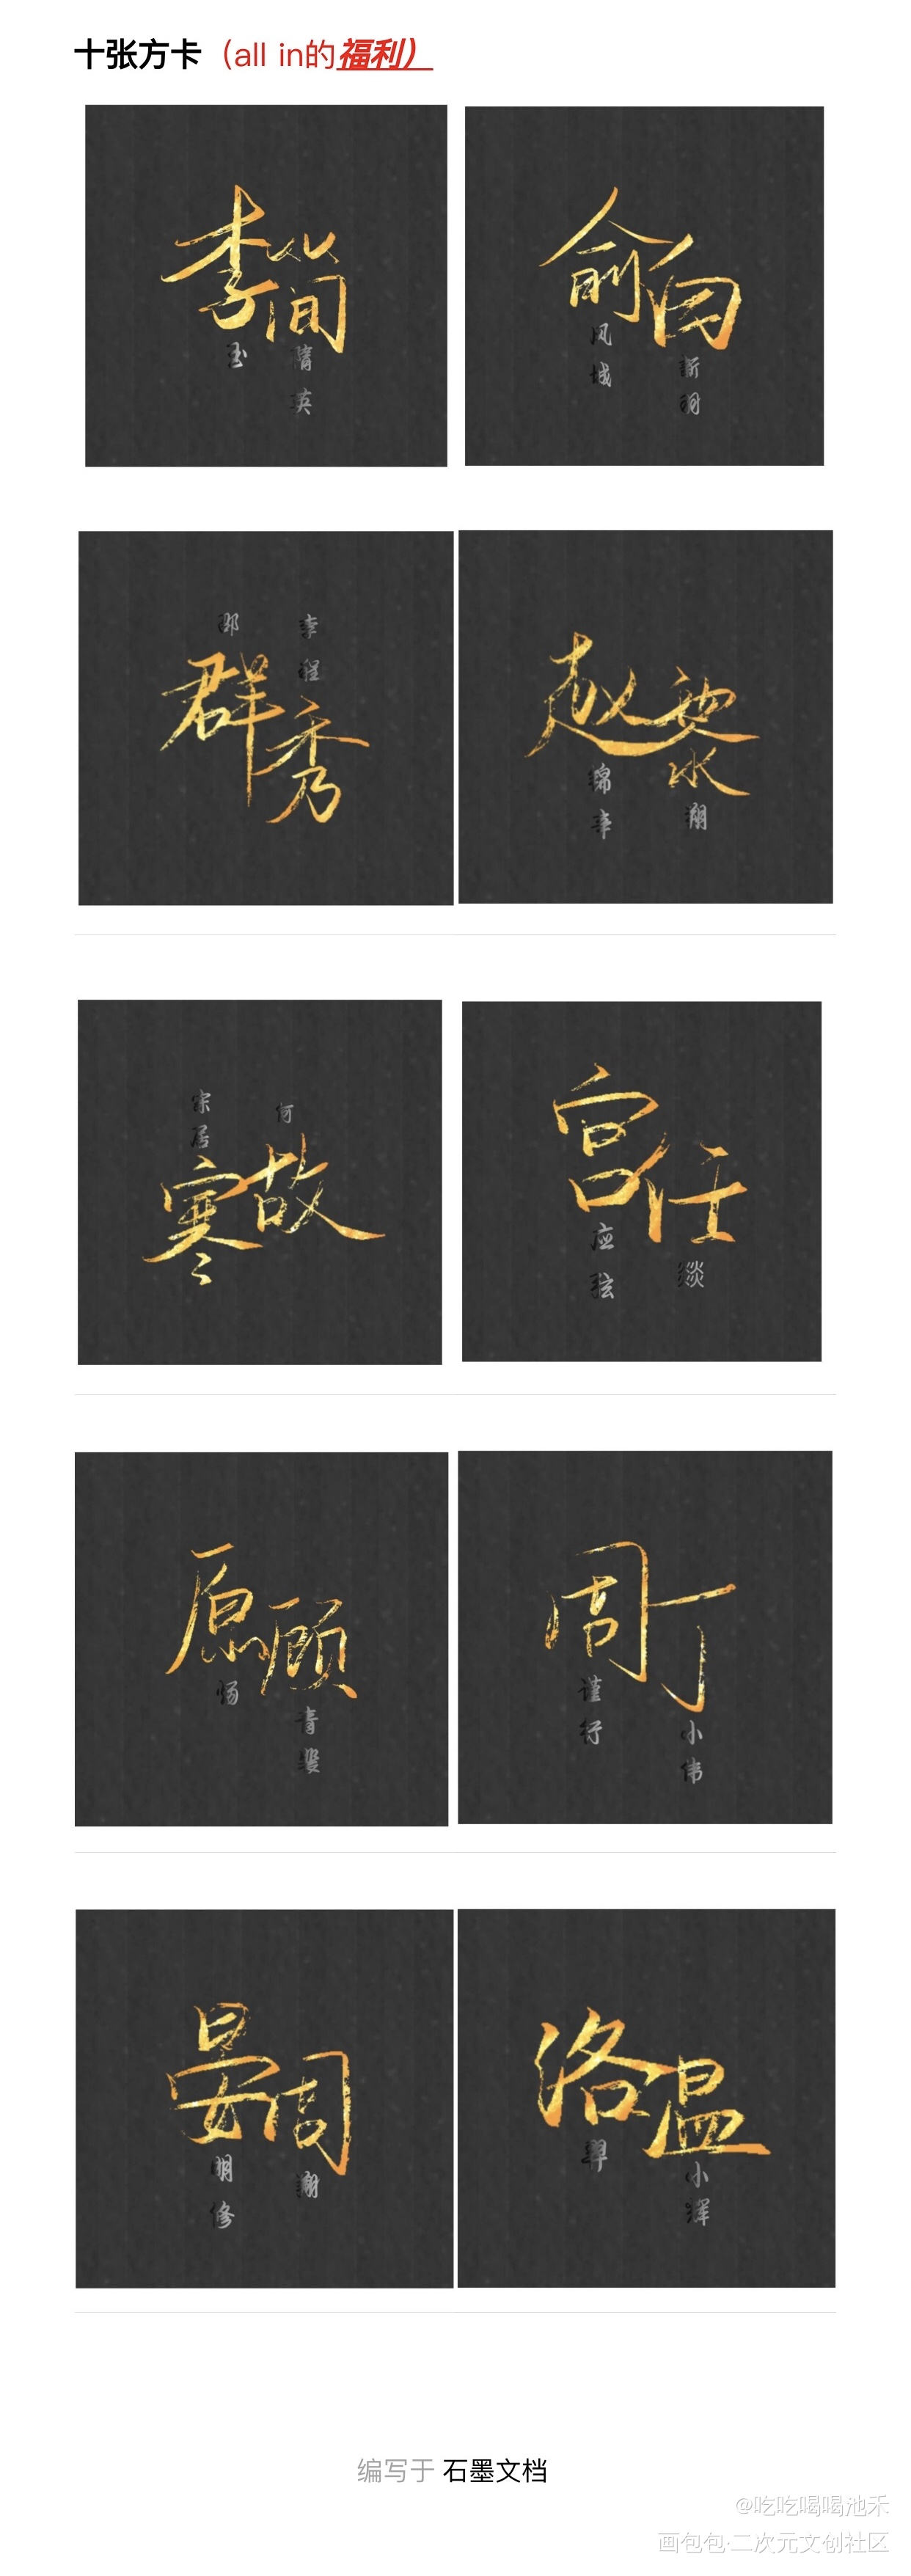 十张方卡（all in的福利）
李 简
玉 隋英
俞 白
风城 新羽
邵 李程
群 秀
赵 黎
锦辛 翔
宋居 何
寒 故
宫 任
应弦 燚
原 顾
炀 青裴
周 丁
谨行 小伟
晏 周
明修 谢
洛 温
羿 小辉
编写于 石墨文档
@吃吃喝喝池禾
画包包·二次元文创社区